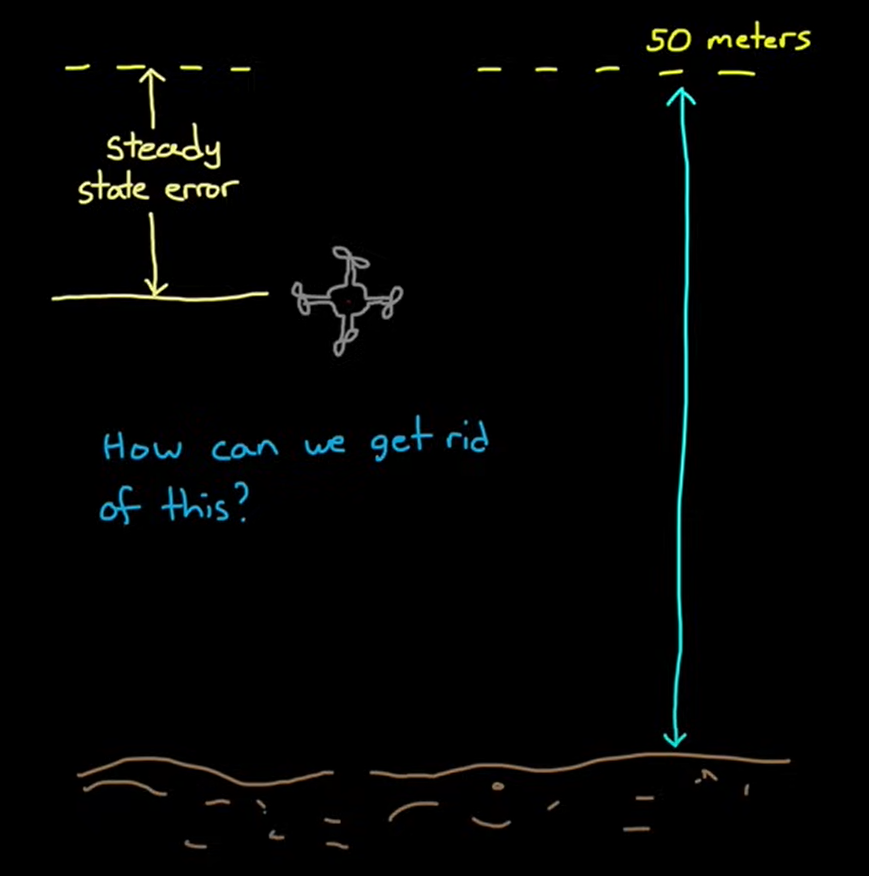 50 meters
steady
state error
How can we get rid
of this?